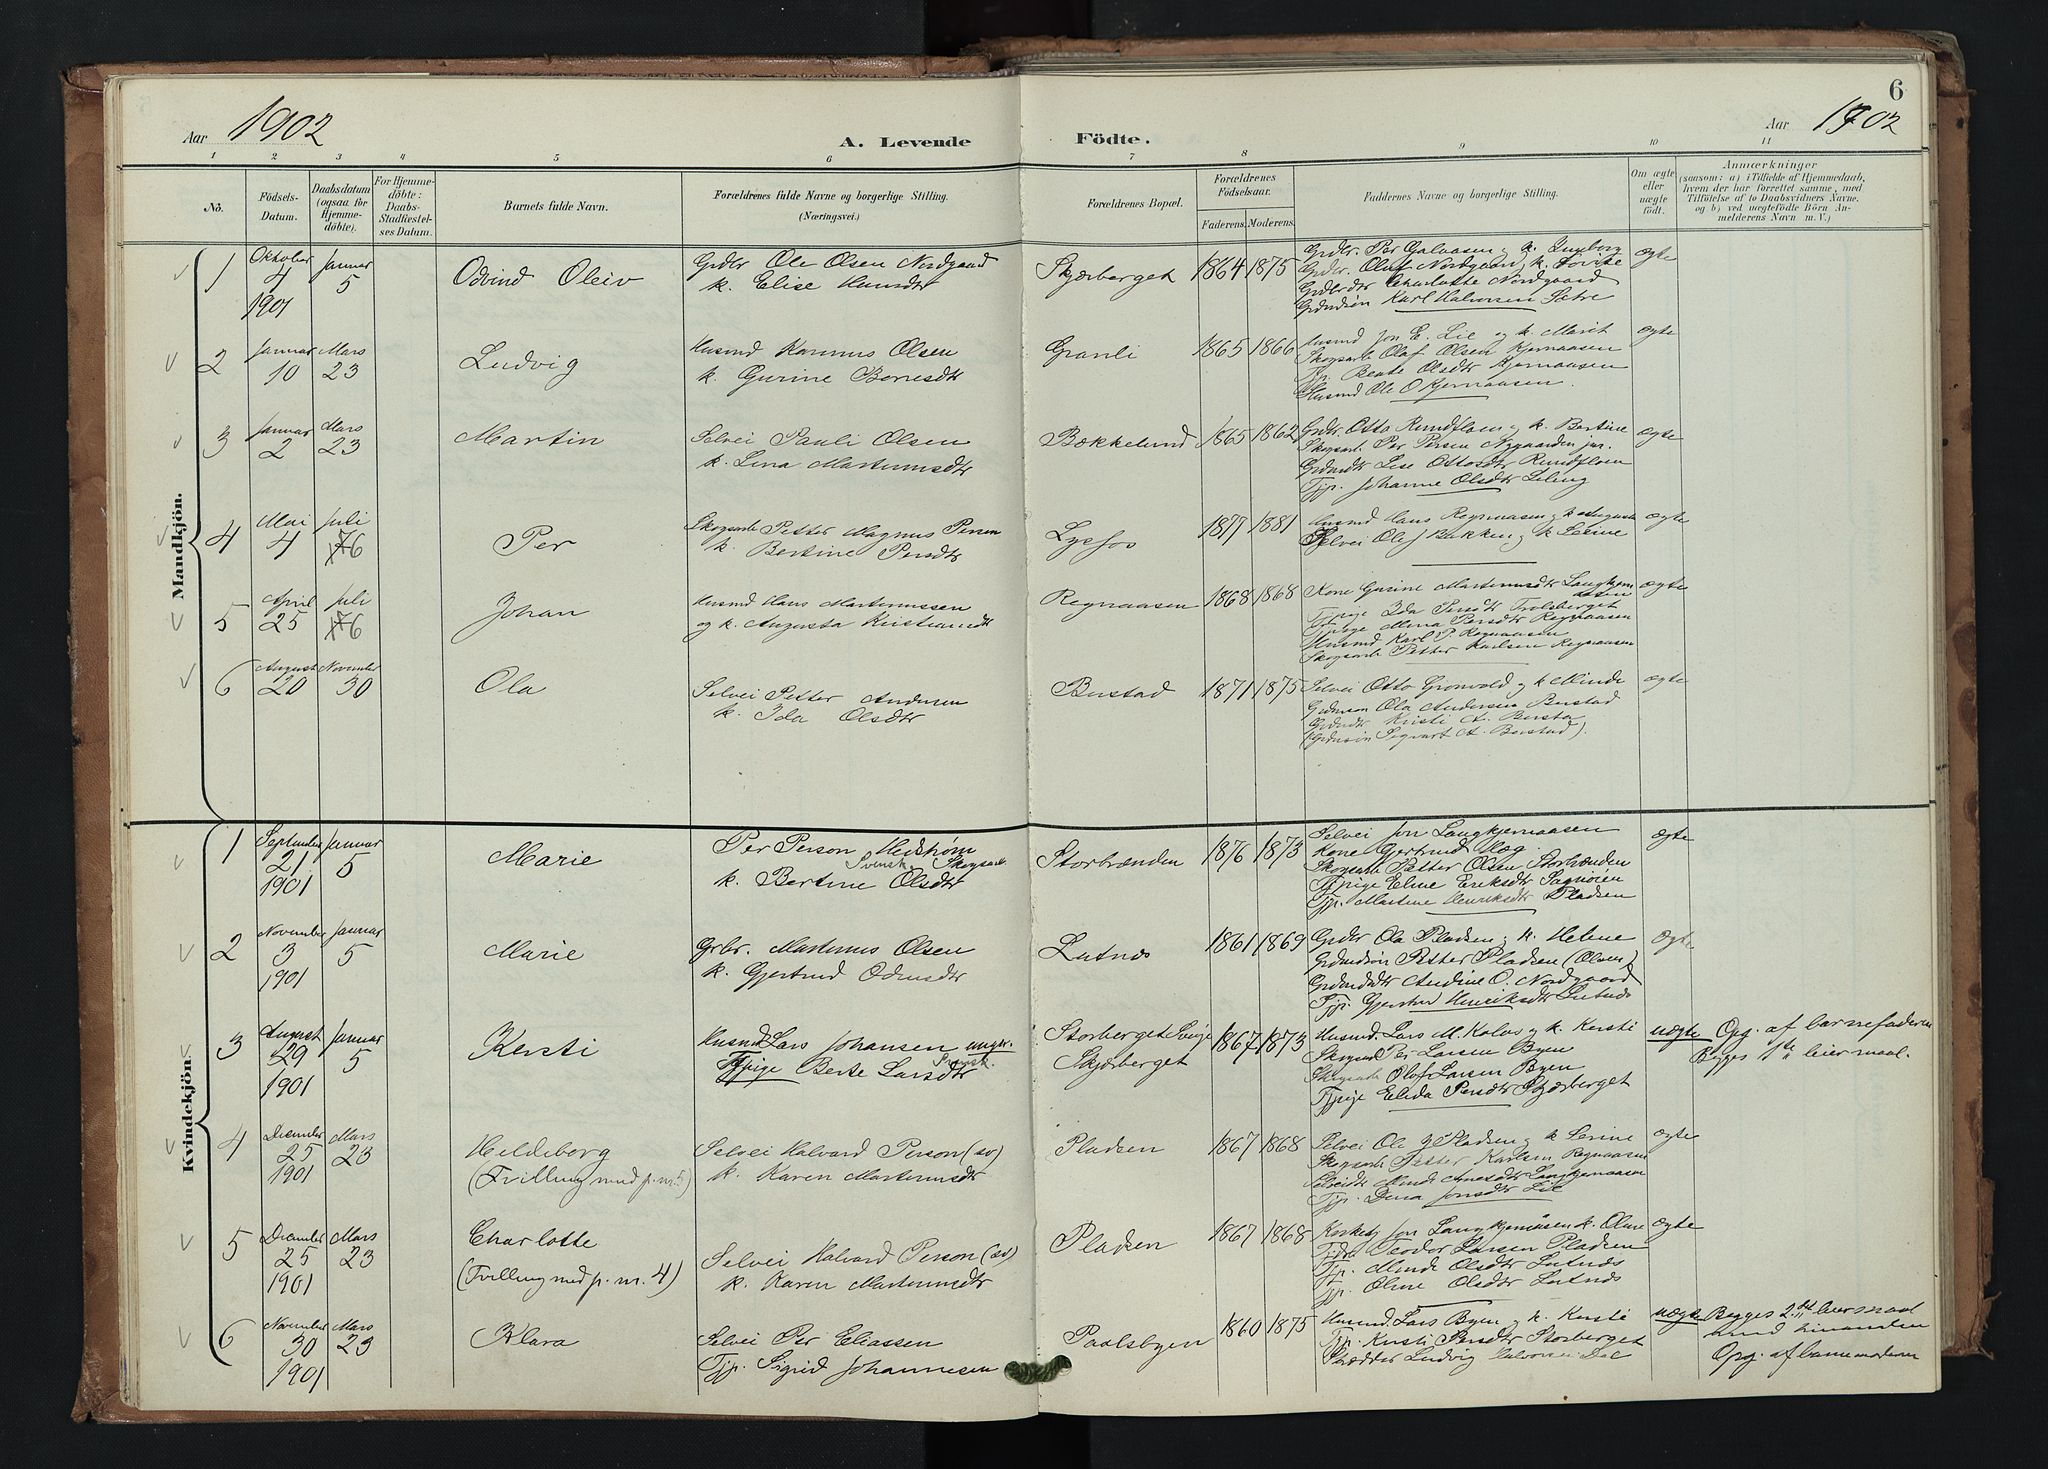 6
Aar 1902
A. Levende Födte.
Aar 1902
1 2 3 4 5 6 7 8 9 10 11
No.
Födsels-
Datum.
Daabsdatum
(ogsaa for
Hjemme-
döbte).
For Hjemme-
döbte:
Daabs-
Stadfæstel-
ses Datum.
Barnets fulde Navn.
Forældrenes fulde Navne og borgerlige Stilling.
(Næringsvei.)
Forældrenes Bopæl.
Forældrenes
Födselsaar.
Faderens. Moderens.
Faddernes Navne og borgerlige Stilling.
Om ægte
eller
uægte
födt.
Anmærkninger
(saasom: a) i Tilfælde af Hjemmedaab,
hvem der har forrettet samme, med
Tilföielse af to Daabsvidners Navne.
og b) ved uægtefödte Börn An-
melderens Navn m. V.)
Mandkjön.
1
Oktober
4
1901
Januar
5
Odvind Oleiv
Grdbr Ole Olsen Nordgaard
k. Elise
Skjærberget
1864 1875
Grdbr. Per Galaasen og k. Ingeborg
Grdbr. Olaf Nordgaard, k. Lovise
Charlotte Nordgaard
Karl Halvorsen Sætre
ægte
2
Januar
10
Mars
23
Ludvig
Husmd Olsen
k. Gurine
Granli
1865 1866
Husmd Jon E. Lie og k. Marit
Skogsarb Olaf Olsen Kjernaasen
Tjp. Beate Olsdtr Kjernaasen
Husmd Ole O Kjernaasen.
ægte
3
Januar
2
Mars
23
Martin
Selvei Pauli Olsen
k. Lina Martinusdtr
Bækkelund
1865 1862
Grdbr. Otto Rundfloen og k. Bertine
Skogsarb. Per Persen Nygaarden jun.
Lise Ottosdtr Rundfloen
Tjp. Johanne Olsdtr
ægte
4
Mai
4
Juli
6
Per
Skogsarb Petter Magnus Person
k. Bertine Persdtr
Lysfos
1877 1881
Husmd Hans Regnaasen og k. Augusta
Selvei Ole J Bakken og k Serine
ægte
5
April
25
Juli
6
Johan
Husmd Hans Martinussen
og k. Augusta Kristiansdtr
Regnaasen
1868 1868
Kone Gurine Martinusdtr
Tjpige Ida Persdtr Trolsberget
Tjpige Mina Persdtr Regnaasen
Husmd Karl P. Regnaasen
Skogsarb Petter Karlsen Regnaasen
ægte
6
August
20
November
30
Ola
Selvei Petter Andersen
k. Ida Olsdtr
Bustad
1871 1875
Selvei Otto Grønvold og k Minda
Ola Andersen Bustad
Kristi A. Bustad
(Gdmsøn Sigvart A. Bustad).
ægte
Kvindekjön.
1
September
21
1901
Januar
5
Marie
Per Person
Svensk Skogsarb
k. Bertine Olsdtr
Storbrænden
1876 1873
Selvei Jon Langkjernaasen
Kone Gjertrud
Skogsarb Petter Olsen Storbrænden
Tjpige Eline Eriksdtr
Tjp. Martine Henriksdtr Pladsen
ægte
2
November
3
1901
Januar
5
Marie
Grbr. Martinus Olsen
k. Gjertrud
Lutnæs
1861 1869
Grdbr Ola Pladsen og k. Helene
Petter Pladsen (Olsen)
Andine O. Nordgaard
Tjp. Henriksdtr Lutnæs
ægte
3
August
29
1901
Januar
5
Kersti
Husmd Lars Johansen ungk.
Tjpige Berte Larsdtr Svensk.
Storberget Sverige
Skjærberget
1867 1873
Husmd. Lars M. Kalvs og k. Kersti
Skogsarb Per Larsen Byen
Skogsarb Olof Larsen Byen
Tjpige Elida Persdtr Skjærberget
uægte
Opg. af barnefaderen
Begges 1ste leiermaal.
4
December
25
1901
Mars
23
Heldeborg
(Tvilling med p. nr. 5)
Selvei Halvard Person (sv)
k. Karen Martinusdtr
Pladsen
1867 1868
Selvei Ole Pladsen og k Serine
Skogsarb Petter Karlsen Regnaasen
Langkjernaasen
Tjp. Dina Jonsdtr Lie
ægte
5
December
25
1901
Mars
23
Charlotte
(Tvilling med p. nr. 4)
Selvei Halvard Person (sv)
k. Karen Martinusdtr
Pladsen
1867 1868
Jon Langkjernaasen k. Oline
Teodor Larsen Pladsen
Tjp. Minda Olsdtr Lutnæs
Tjp. Oline Olsdtr Lutnæs
ægte
6
November
30
1901
Mars
23
Klara
Selvei Per Eliassen
Tjp. Sigrid Johannesen
Paalsbyen
1860 1875
Husmd Lars Byen og k. Kersti
Tjp. Kersti Persdtr Storberget
Ludvig Halvorsen
uægte
Begges 2det leiermaal
med hinanden
Opg. af barnemoderen